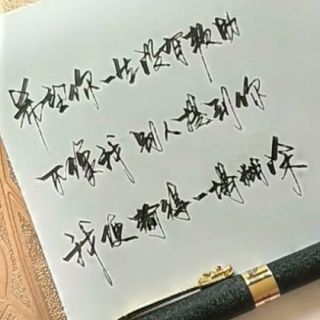 希望你一生没有软肋
不像我 别人提到你
我便输得一塌糊涂